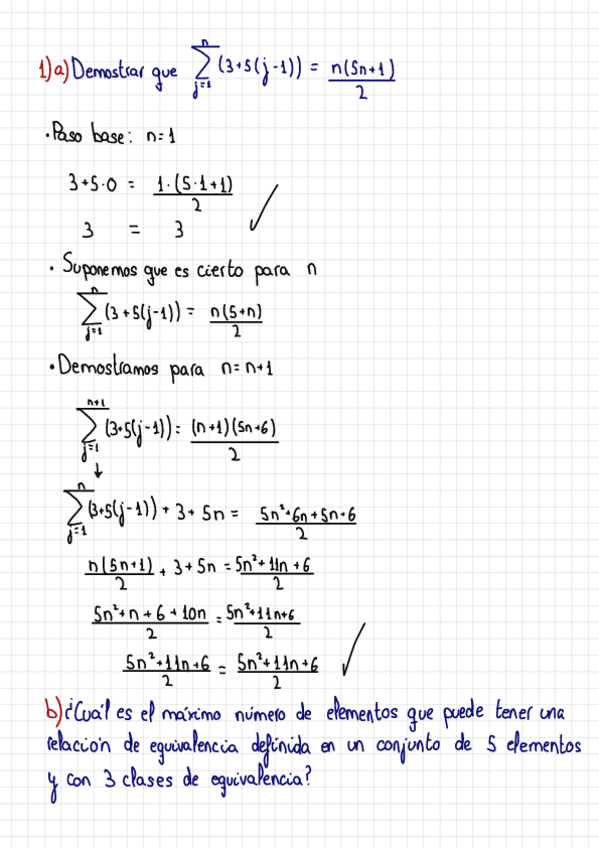 1)a) Demostrar que ∑_{j=1}^{n} (3+5(j-1)) = n(5n+1)/2
• Paso base: n=1
3+5·0 = 1·(5·1+1)/2
3 = 3 ✓
• Suponemos que es cierto para n
∑_{j=1}^{n} (3+5(j-1)) = n(5+n)/2
• Demostramos para n=n+1
∑_{j=1}^{n+1} (3+5(j-1)) = (n+1)(5n+6)/2
↓
∑_{j=1}^{n} (3+5(j-1)) + 3 + 5n = 5n²+6n+5n+6/2
n(5n+1)/2 + 3+5n = 5n²+11n+6/2
5n²+n+6+10n/2 = 5n²+11n+6/2
5n²+11n+6/2 = 5n²+11n+6/2 ✓
b) ¿Cuál es el máximo número de elementos que puede tener una
relación de equivalencia definida en un conjunto de 5 elementos
y con 3 clases de equivalencia?